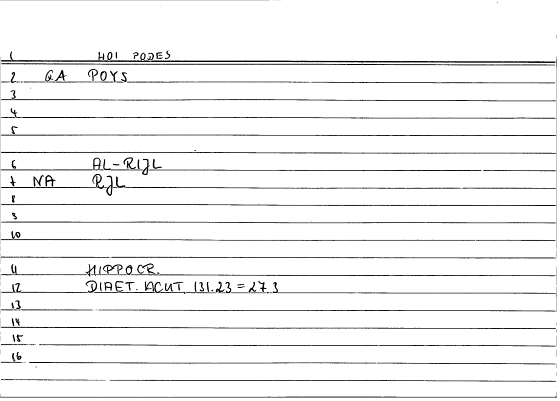 1 HOI PODES
2 GA POYS
3
4
5
6 AL-RIJL
7 NA RJL
8
9
10
11 HIPPOCR.
12 DIAET. ACUT. 131.23 = 27.3
13
14
15
16